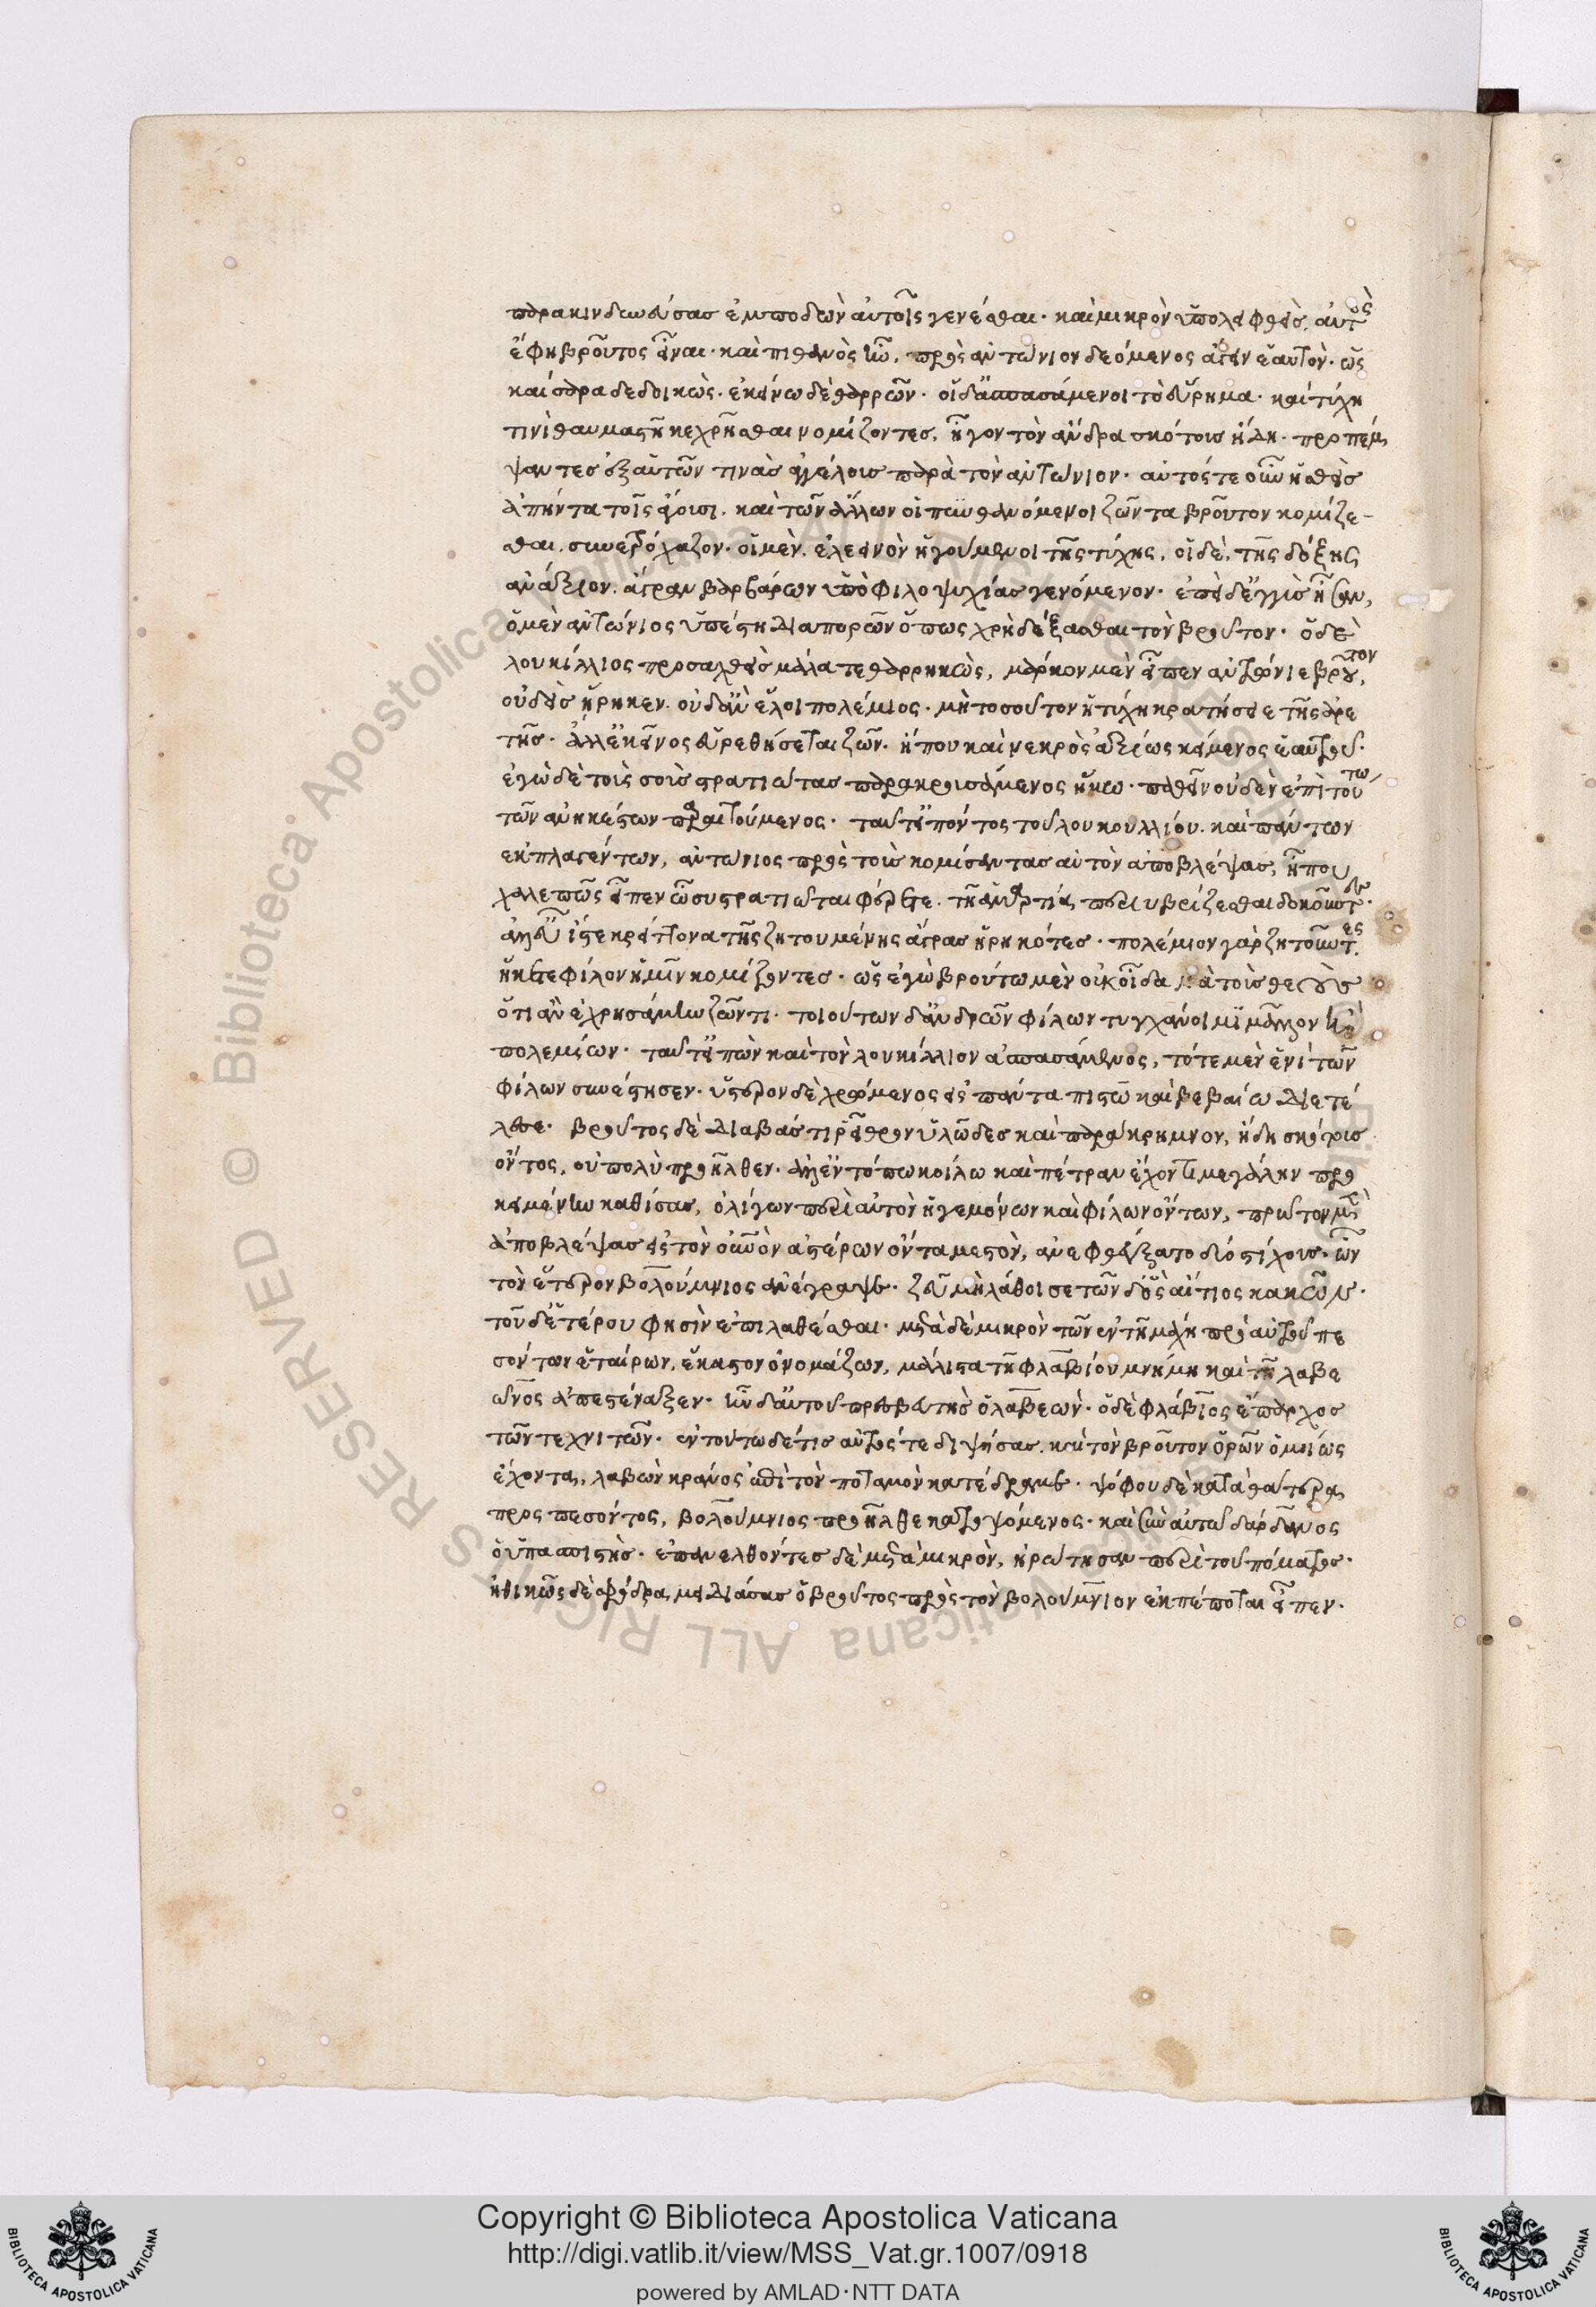 παρακινδυνεύσας ἐμποδὼν αὐτοῖς γενέσθαι· καὶ μικρὸν ὑπολειφθεὶς, αὐτὸς
ἔφη βροῦτος εἶναι· καὶ πιθανὸς ἦν, πρὸς ἀντώνιον δεόμενος ἄγειν ἑαυτὸν· ὡς
καίσαρα δεδοικὼς· ἐκείνω δὲ θαρρῶν· οἱ δ' ἀσπασάμενοι τὸ εὕρημα· καὶ τύχη
τινὶ θαυμαστῆ κεχρῆσθαι νομίζοντες, ἦγον τὸν ἄνδρα σκότους ἤδη· προπέμ
ψαντες ἐξ αὑτῶν τινὰς ἀγγέλους παρὰ τὸν ἀντώνιον· αὐτός τε οὖν ἡσθεὶς
ἀπήντα τοῖς ἄγουσι· καὶ τῶν ἄλλων οἱ πυνθανόμενοι ζῶντα βροῦτον κομίζε-
σθαι, συνετρόχαζον· οἱ μὲν, ἐλεεινὸν ἡγούμενοι τῆς τύχης, οἱ δὲ, τῆς δόξης
ἀνάξιον, ἄγραν βαρβάρων ὑπὸ φιλοψυχίας γενόμενον· ἐπεὶ δ' ἐγγὺς ἦσαν,
ὁ μὲν ἀντώνιος ὑπέστη διαπορῶν ὅπως χρὴ δέξασθαι τὸν βροῦτον· ὁ δὲ
λουκίλλιος προσαχθεὶς μάλα τεθαρρηκὼς, μάρκον μὲν εἶπεν ἀντώνιε βροῦτον,
οὐδεὶς ἥρηκεν· οὐδ' ἂν ἕλοι πολέμιος· μὴ τοσοῦτον ἡ τύχη κρατήσειε τῆς ἀρε
τῆς· ἀλλ' ἐκεῖνος εὑρεθήσεται ζῶν· ἤ που καὶ νεκρὸς ἀξίως κείμενος ἑαυτοῦ·
ἐγὼ δὲ τοὺς σοὺς στρατιώτας παρακρουσάμενος ἥκω· παθεῖν οὐδὲν ἐπὶ τούτω
τῶν ἀνηκέστων παραιτούμενος· ταῦτ' εἰπόντος τοῦ λουκουλλίου· καὶ πάντων
ἐκπλαγέντων, ἀντώνιος πρὸς τοὺς κομίσαντας αὐτὸν ἀποβλέψας, ἦ που
χαλεπῶς εἶπεν ὦ συστρατιῶται φέρετε· τῆ ἁμαρτία περιυβρίζεσθαι δοκοῦντες·
ἀλλ' εὖ ἴστε κρείττονα τῆς ζητουμένης ἄγρας ἡρηκότες· πολέμιον γὰρ ζητοῦντες,
ἥκετε φίλον ἡμῖν κομίζοντες· ὡς ἐγὼ βρούτω μὲν οὐκ οἶδα μὰ τοὺς θεοὺς
ὅτι ἂν ἐχρησάμην ζῶντι· τοιούτων δ' ἀνδρῶν φίλων τυγχάνοιμι μᾶλλον ἢ
πολεμίων· ταῦτ' εἰπὼν καὶ τὸν λουκίλλιον ἀσπασάμενος, τότε μὲν ἑνὶ τῶν
φίλων συνέστησεν· ὕστερον δὲ χρώμενος εἰς πάντα πιστῶ καὶ βεβαίω διετέ
λεσε· βροῦτος δὲ διαβάς τι ῥεῖθρον ὑλῶδες καὶ παράκρημνον, ἤδη σκότους
ὄντος, οὐ πολὺ προῆλθεν· ἀλλ' ἐν τόπω κοίλω καὶ πέτραν ἔχοντι μεγάλην προ
κειμένην καθίσας, ὀλίγων περὶ αὐτὸν ἡγεμόνων καὶ φίλων ὄντων, πρῶτον μὲν
ἀποβλέψας εἰς τὸν οὐρανὸν ἀστέρων ὄντα μεστὸν, ἀνεφθέγξατο δύο στίχους· ὧν
τὸν ἕτερον βολούμνιος ἀνέγραψε· ζεῦ μὴ λάθοι σε τῶνδ' ὃς αἴτιος κακῶν·
τοῦ δ' ἑτέρου φησὶν ἐπιλαθέσθαι· μετὰ δὲ μικρὸν τῶν ἐν τῆ μάχη πρὸ αὐτοῦ πε
σόντων ἑταίρων, ἕκαστον ὀνομάζων, μάλιστα τῆ φλαβίου μνήμη καὶ τῆ λαβε
ῶνος ἀπεστέναξεν· ἦν δ' αὐτοῦ πρεσβευτὴς ὁ λαβεών· ὁ δὲ φλάβιος ἔπαρχος
τῶν τεχνιτῶν· ἐν τούτω δέ τις αὐτός τε διψήσας, καὶ τὸν βροῦτον ὁρῶν ὁμοίως
ἔχοντα, λαβὼν κράνος ἐπὶ τὸν ποταμὸν κατέδραμε· ψόφου δὲ κατὰ θάτερα
προσπεσόντος, βολούμνιος προῆλθε κατοψόμενος· καὶ σὺν αὐτῶ δάρδανος
ὁ ὑπασπιστὴς· ἐπανελθόντες δὲ μετὰ μικρὸν, ἠρώτησαν περὶ τοῦ πόματος·
ἠθικῶς δὲ σφόδρα μειδιάσας ὁ βροῦτος πρὸς τὸν βολούμνιον ἐκπέποται εἶπεν·
Copyright © Biblioteca Apostolica Vaticana
http://digi.vatlib.it/view/MSS_Vat.gr.1007/0918
powered by AMLAD·NTT DATA